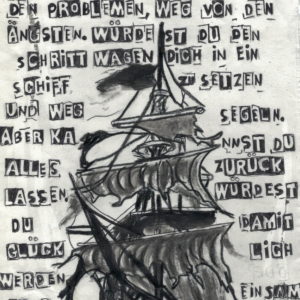 DEN PROBLEMEN, WEG VON DEN
ÄNGSTEN. WÜRDEST DU DEN
SCHRITT WAGEN DICH IN EIN
SCHIFF ZU SETZEN
UND WEG SEGELN.
ABER KA NNST DU
ALLES ZURÜCK
LASSEN. WÜRDEST
DU DAMIT
GLÜCK LICH
WERDEN EINSAM